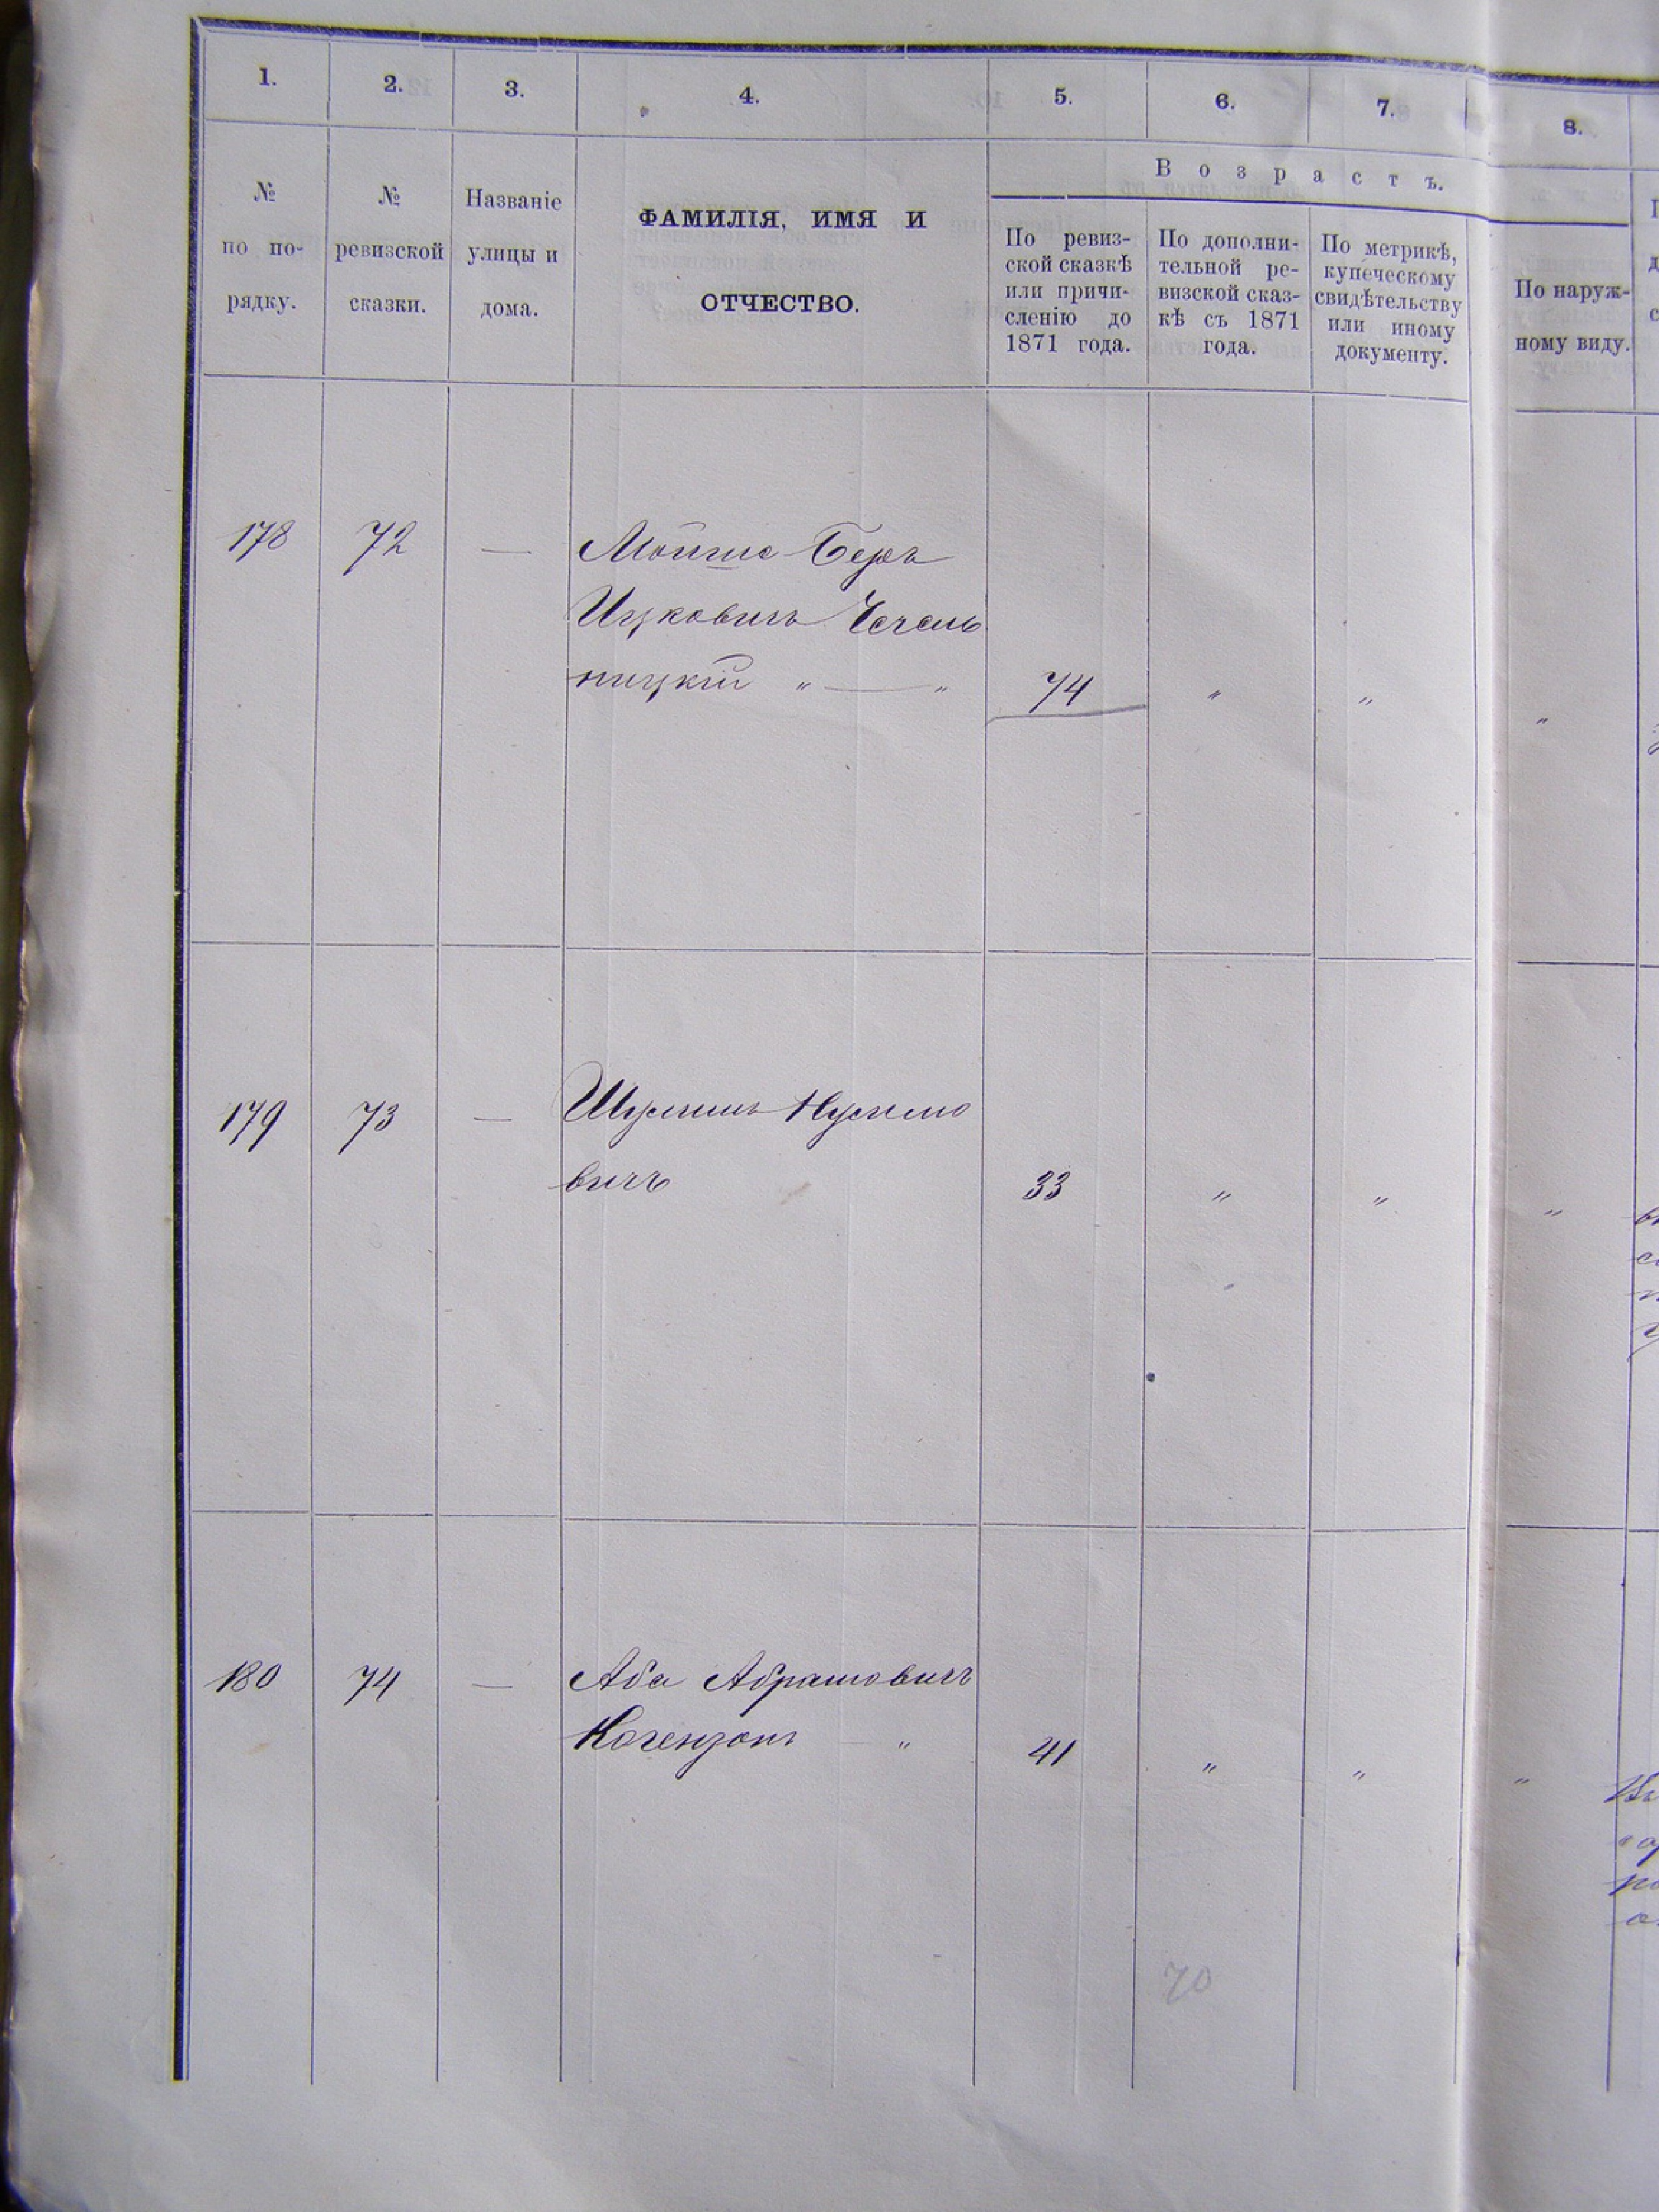 1. 2. 3. 4. 5. 6. 7. 8.
Возрастъ.
№ по по-рядку.
№ ревизской сказки.
Названіе улицы и дома.
ФАМИЛІЯ, ИМЯ И
ОТЧЕСТВО.
По ревиз-
ской сказкѣ
или причи-
сленію до
1871 года.
По дополни-
тельной ре-
визской сказ-
кѣ съ 1871
года.
По метрикѣ,
купеческому
свидѣтельству
или иному
документу.
По наруж-
ному виду.
178 72 — Мошко Беръ
Ицковичъ Чечель
ницкій " — " 74 " " "
179 73 — Шулимъ Нусимо
вичъ 33 " " "
180 74 — Аба Абрамовичъ
Когензонъ — " 41 " " "
70